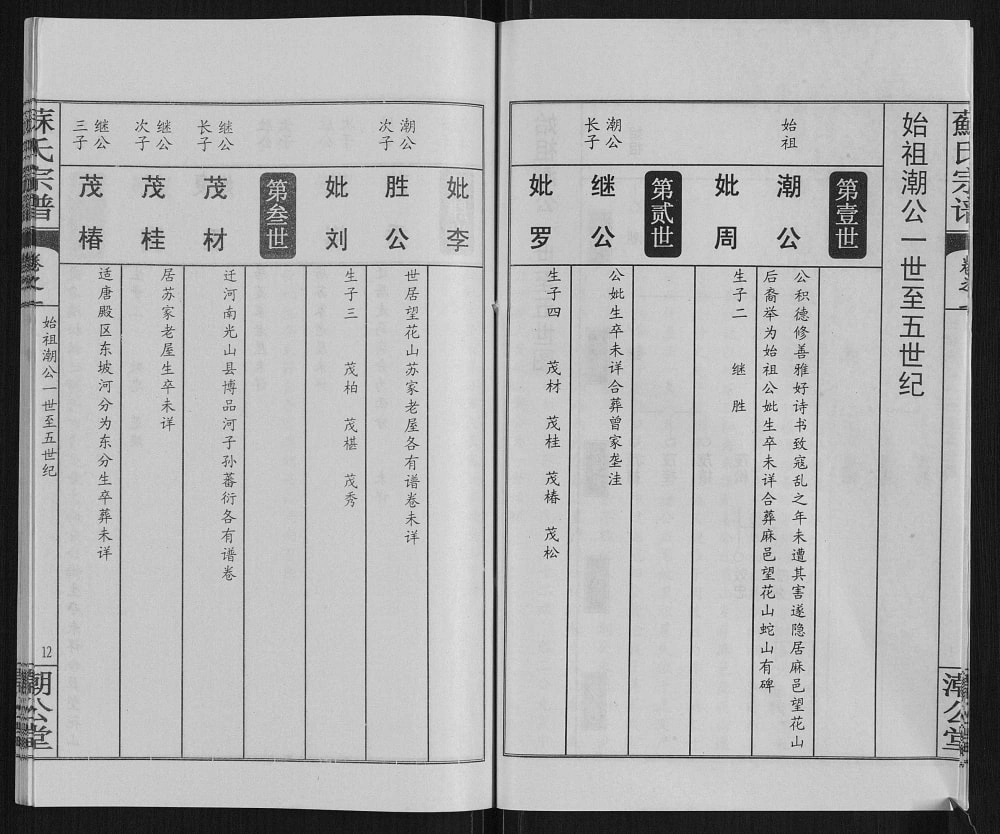 蘇氏宗谱
潮公堂
始祖潮公一世至五世纪
第壹世
始祖
潮公
公积德修善雅好诗书致寇乱之年未遭其害遂隐居麻邑望花山
后裔举为始祖公妣生卒未详合葬麻邑望花山蛇山有碑
妣周
生子二 继 胜
第贰世
潮公
长子
继公
公妣生卒未详合葬曾家垄洼
妣罗
生子四 茂材 茂桂 茂椿 茂松
妣李
潮公
次子
胜公
世居望花山苏家老屋各有谱卷未详
妣刘
生子三 茂柏 茂椹 茂秀
第叁世
继公
长子
茂材
迁河南光山县博品河子孙蕃衍各有谱卷
继公
次子
茂桂
居苏家老屋生卒未详
继公
三子
茂椿
适唐殿区东坡河分为东分生卒葬未详
氏宗谱
卷之一
始祖潮公一世至五世纪
12
潮公堂